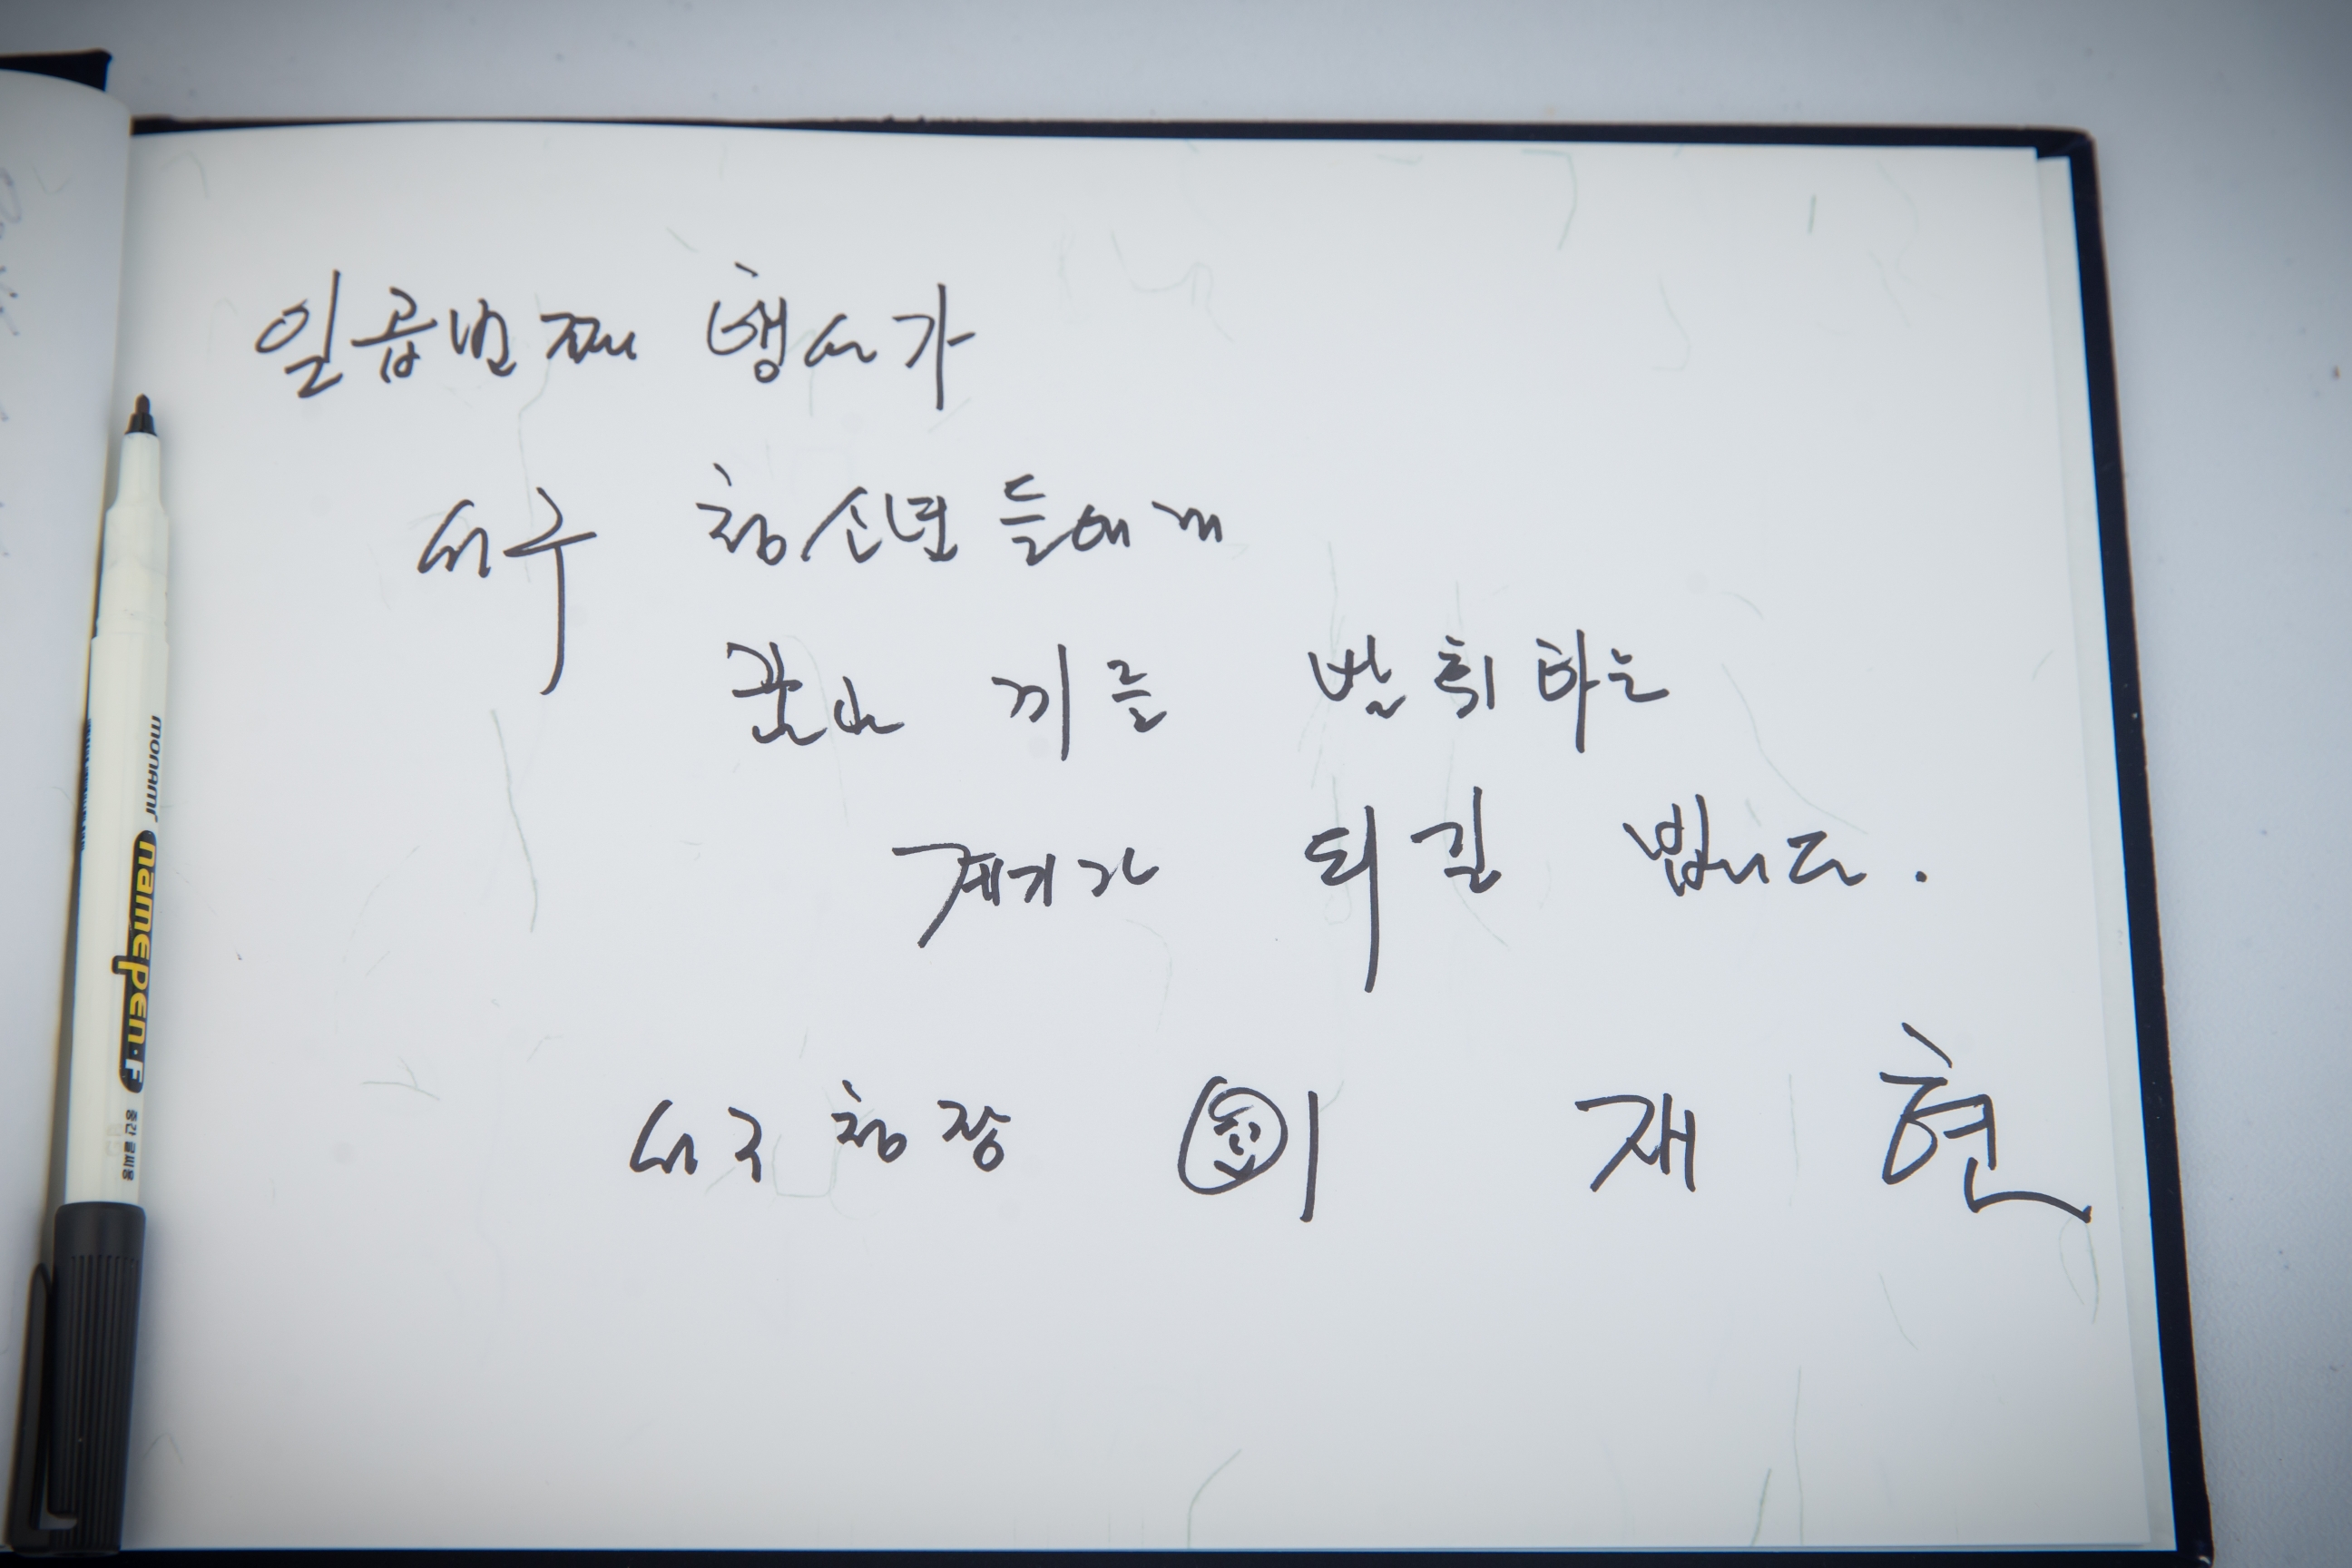 일곱번째 행사가
서구 청소년들에게
꿈과 끼를 발휘하는
계기가 되길 빕니다.
서구청장 이 재 현
monami
namepen·F
중간 글씨용